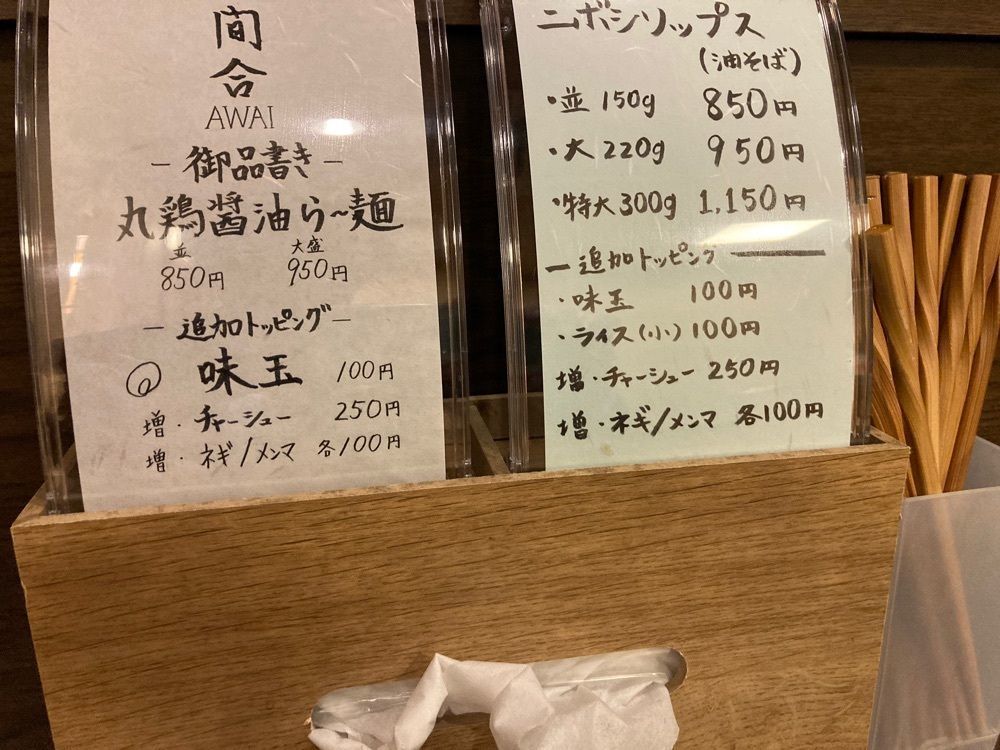 間
合
AWAI
- 御品書き -
丸鶏醤油ら〜麺
並 大盛
850円 950円
- 追加トッピング -
味玉 100円
増・チャーシュー 250円
増・ネギ/メンマ 各100円
ニボシソップス
(油そば)
・並 150g 850円
・大 220g 950円
・特大 300g 1,150円
ー 追加トッピング ー
・味玉 100円
・ライス(小) 100円
増・チャーシュー 250円
増・ネギ/メンマ 各100円